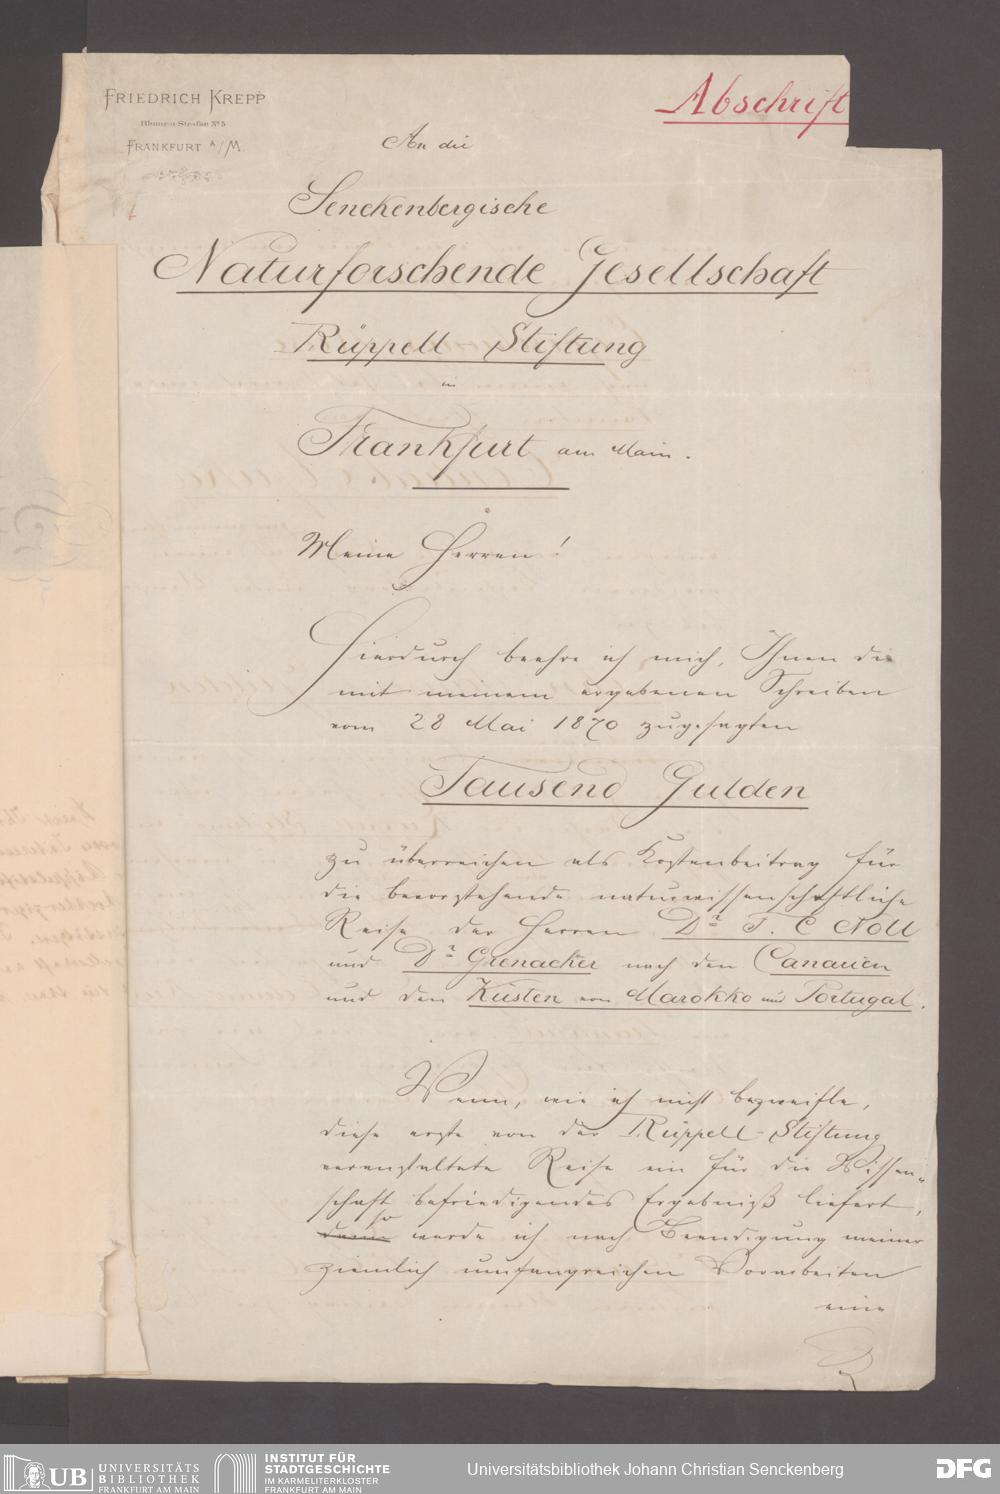 FRIEDRICH KREPP
Blumen-Straße No 5
FRANKFURT A/M
Abschrift
An die
Senckenbergische
Naturforschende Gesellschaft
Rüppell-Stiftung
in
Frankfurt am Main.
Meine Herren!
Hierdurch beehre ich mich, Ihnen die
mit meinem ergebenen Schreiben
vom 28 Mai 1870 zugesagten
Tausend Gulden
zu überreichen als Kostenbeitrag für
die bevorstehende naturwissenschaftliche
Reise der Herren Dr F. C Noll
und Dr Grenacher nach den Canarien
und den Küsten von Marokko und Portugal.
Wenn, wie ich nicht bezweifle,
diese erste von der Rüppell-Stiftung
veranstaltete Reise ein für die Wissen-
schaft befriedigendes Ergebniß liefert,
so
dann werde ich nach Beendigung meiner
ziemlich umfangreichen Vorarbeiten
eine
UB UNIVERSITÄTS
BIBLIOTHEK
FRANKFURT AM MAIN
INSTITUT FÜR
STADTGESCHICHTE
IM KARMELITERKLOSTER
FRANKFURT AM MAIN
Universitätsbibliothek Johann Christian Senckenberg
DFG